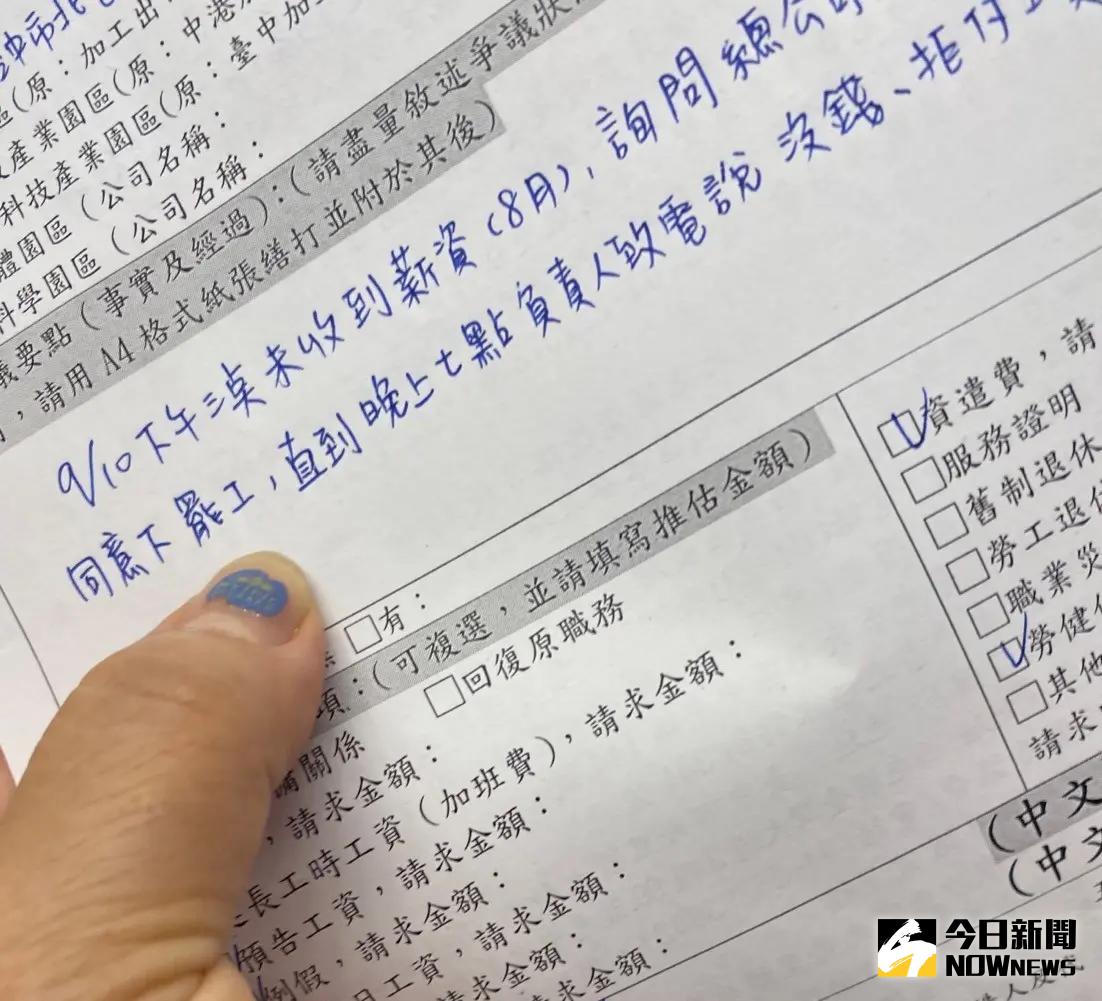 沖市北
區(原：加工出
產業園區(原：中港
科技產業園區(原：臺中加
體園區(公司名稱：
科學園區(公司名稱：
議要點(事實及經過)：(請盡量敘述爭議狀
，請用A4格式紙張繕打並附於其後)
9/10下午三點未收到薪資(8月)，詢問總公司
同意下罷工，直到晚上七點負責人致電說 沒錢、拒付
□有：
項：(可複選，並請填寫推估金額)
□回復原職務
關係
，請求金額：
長工時工資(加班費)，請求金額：
預告工資，請求金額：
例假，請求金額：
日工資，請求金額：
請求金額：
資遣費，請
□服務證明
□舊制退休
□勞工退休
□職業災
勞健保
□其他
請求
(中文
(中文
今日新聞
NOWNEWS